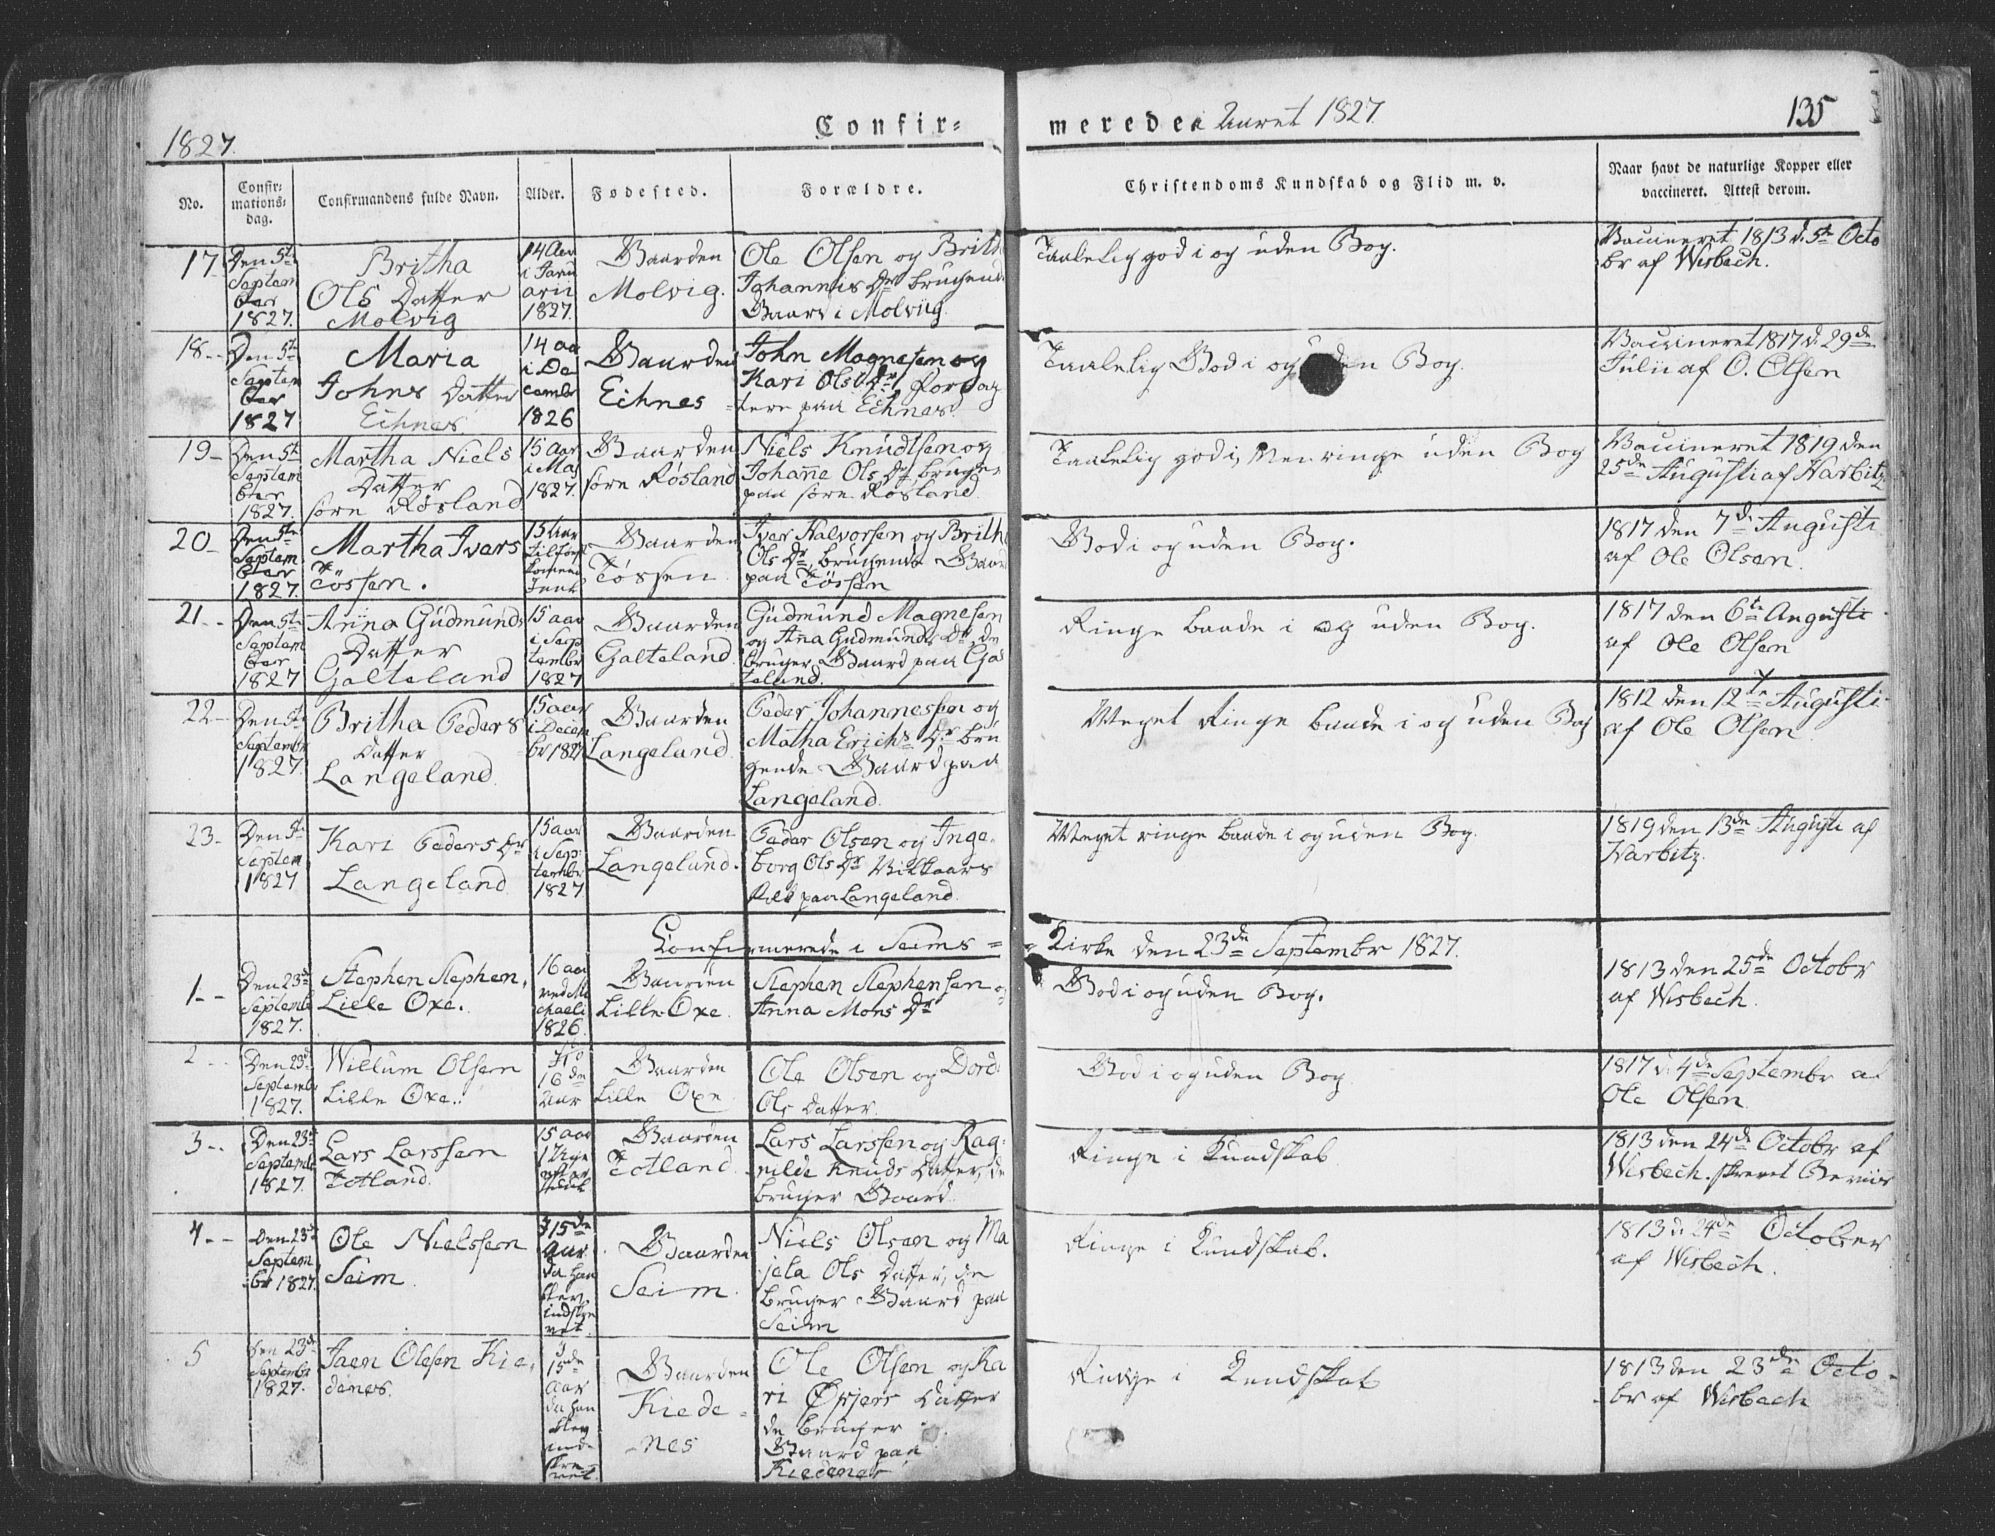 1827.
Confir=
meredei Aaret 1827.
135
No.
Confir=
mations=
dag.
Confirmandens fulde Navn.
Alder.
Fødested.
Forældre.
Christendoms Kundskab og Flid m. v.
Naar havt de naturlige Kopper eller
vaccineret. Attest derom.
17
Den 5te
Septem
ber
1827.
Britha
Ols Datter
Molvig
14 Aar
i Janu
arii
1827.
Gaarden
Molvig.
Ole Olsen og Brith
Johannis Dr brugende
Gaard i Molviig.
Taalelig god i og uden Bog.
Vaccineret 1813 d. 5te Octo
br af Wisbech.
18
Den 5te
Septem
ber
1827
Maria
Johns Datter
Eihnes
14 aar
i De
cembr
1826
Gaarden
Eihnes
John Magnesen og
Kari Ols Dr
tere paa Eihnes.
Taalelig God i og uden Bog.
Vaccineret 1817 d. 29de
Julii af O. Olsen
19
Den 5te
Septem
ber
1827.
Martha Niels
Datter
søre Røsland
15 Aar
i Maj
1827.
Gaarden
søre Røsland
Niels Knudtsen og
Johanne Ols Dr bruger
paa søre Røsland
Taalelig god i, Men ringe uden Bog
Vaccineret 1819 den
25de Augusti af Harbitz
20
Den 5te
Septem
ber
1827.
Martha Ivers
Tössen.
15 Aar
Gaarden
Tössen
Iver Halvorsen og Brith
Ols Dr, brugende Gaard
paa Tössen
God i og uden Bog.
1817 den 7de Augusti
af Ole Olsen.
21
Den 5te
Septem
ber
1827
Anna Gudmunds
Datter
Galteland
15 aar
i Sep
tembr
1827
Gaarden
Galteland
Gudmund Magnesen
og Anna Gudmunds Dr, de
bruger Gaard paa Gal
teland.
Ringe baade i og uden Bog.
1817 den 6te Augusti
af Ole Olsen
22
Den 5te
Septembr
1827.
Britha Peders
Datter
Langeland
15 aar
i Decem
br 1827
Gaarden
Langeland
Peder Johannessen og
Matha Erichs Dr bru
gende Gaard paa
Langeland.
Meget Ringe baade i og uden Bog
1812 den 12te Augusti
af Ole Olsen.
23.
Den 5te
Septem
1827
Kari Peders Dr
Langeland
15 aar
i Sep
tembr
1827
Gaarden
Langeland.
Peder Olsen og Inge
borg Ols Dr
paa Langeland.
Meget ringe baade i og uden Bog.
1819 den 13de Augusti af
Harbitz.
Confirmerede i Seims =
Kirke den 23de Septembr 1827.
1
Den 23de
Septembr
1827.
Stephen Stephen.
Lille Oxe.
16 aar
ved Mi
chaeli
1826.
Gaarden
Lille Oxe.
Stephen Stephensen og
Anna Mons Dr
God i og uden Bog.
1813 den 25de Octobr
af Wisbech.
2
Den 23de
Septembr
1827.
Willum Olsen
Lille Oxe.
16de
Aar
Gaarden
Lille Oxe
Ole Olsen og Dord
Ols Datter.
God i og uden Bog
1817 d. 4de Septembr af
Ole Olsen.
3
Den 23de
Septembr
1827.
Lars Larssen
Totland.
15 aar
1 Uge
efter
Gaarden
Totland
Lars Larssen og Rag
nilde Knuds Datter, de
bruger Gaard.
Ringe i Kundskab
1813 den 24de Octobr af
Wisbech. skrevet
4
Den 23de
Septem
br 1827.
Ole Nielssen
Seim
I 15de
Aar
da han
blev
indskre
vet.
Gaarden
Seim.
Niels Olsen og Ma
jela Ols Datter, de
bruger Gaard paa
Seim
Ringe i Kundskab.
1813 d. 24de October
af Wisbech.
5
Den 23de
Septembr
1827.
Jaen Olesen Kie
denes.
I
15de
Aar
da han
blev
ind
skre
vet
Gaarden
Kiede
nes
Ole Olsen og Ka
ri Datter
de bruger
Gaard paa
Kiedenes
Ringe i Kundskab
1813 den 23de Octo
br af Wisbech